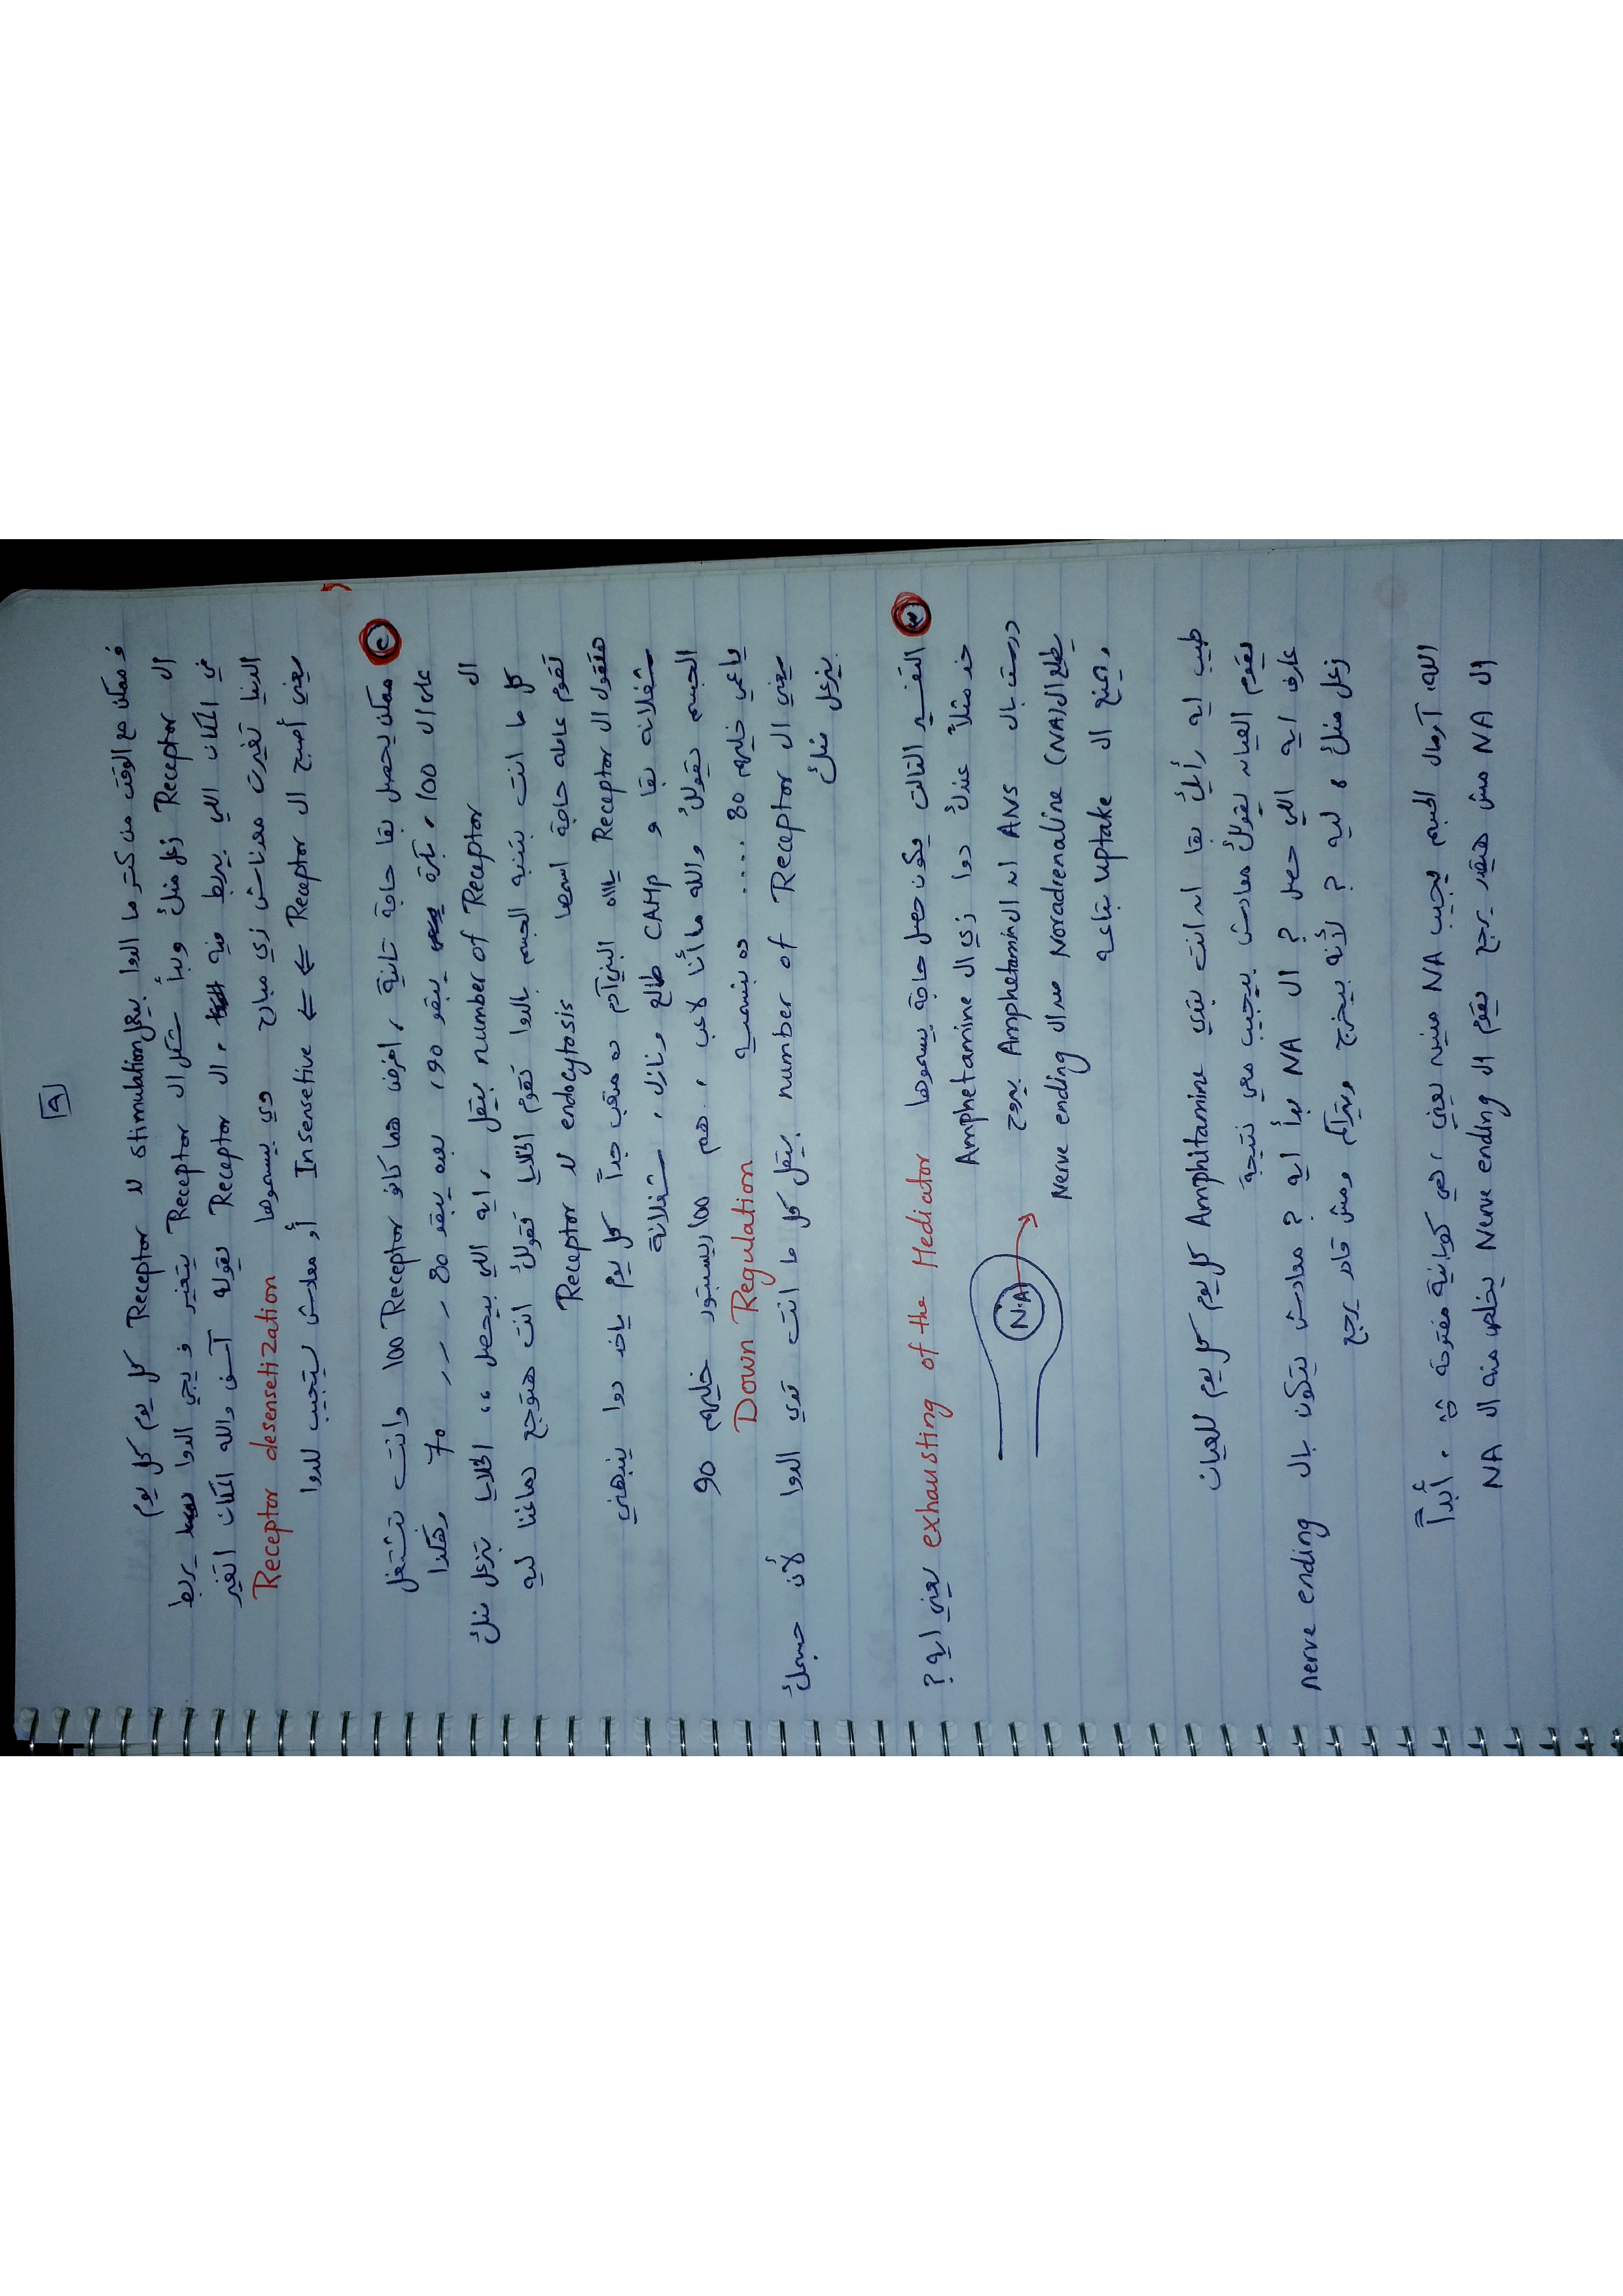 ٩
وممكن مع الوقت من كتر ما الدوا بيعمل stimulation لل Receptor كل يوم كل يوم
ال Receptor زعل منك وبدأ شكل ال Receptor يتغير و يجي الدوا يربط
في المكان اللي بيربط فيه ، ال Receptor يقوله آسف والله المكان اتغير
الدنيا تغيرت معدناش زي مبارح ودي بيسموها Receptor desensetization
يعني أصبح ال Receptor ⇐ Insensetive أو معدش يستجيب للدوا
٢ ممكن يحصل بقا حاجة تانية ، افرض هما كانو 100 Receptor وانت بتشتغل
على ال 100 ، بكرة يبقو 90 ، بعده يبقو 80 ، 70 وهكذا
ال number of Receptor بيقل ، ايه اللي بيحصل ،، الخلايا بتزعل منك
كل ما انت بتنبه الجسم بالدوا تقوم الخلايا تقولك انت هتوجع دماغنا ليه
تقوم عامله حاجة اسمها endocytosis لل Receptor
فتقول ال Receptor ياااه البني آدم ده متعب جداً كل يوم ياخد دوا ينبهني
شغلانه بقا و CAMP طالع ونازل ، شغلانة
الجسم يقولك والله ما أنا لاعب ، هم 100 ريسبتور خليهم 90
ياعي خليهم 80 .... ده بنسميه Down Regulation
يعني ال number of Receptor بيقل كل ما انت تدي الدوا لأن جسمك
بيزعل منك
٣ التفسير التالت يكون حصل حاجة بيسموها exhausting of the Mediator يعني ايه ؟
خد مثلاً عندك دوا زي ال Amphetamine
درست بال ANS ان ال Amphetamine بيروح
يطلع ال Noradrenaline (NA) من ال Nerve ending
ويمنع ال uptake بتاعه
N.A
طيب ايه رأيك بقا ان انت بتدي Amphitamine كل يوم كل يوم للعيان
يقوم العيان يقولك معادش بيجيب معي نتيجة
عارف ايه اللي حصل ؟ ال NA بدأ ايه ؟ معادش يتكون بال nerve ending
زعل منك ، ليه ؟ لأنه بيخرج ويتراكم ومش قادر يرجع
الله، آرمال الجسم يجيب NA منين يعني ، هي كوبانية مفتوحة ، أبداً
ال NA مش هيقدر يرجع يقوم ال Nerve ending يخلص منه ال NA